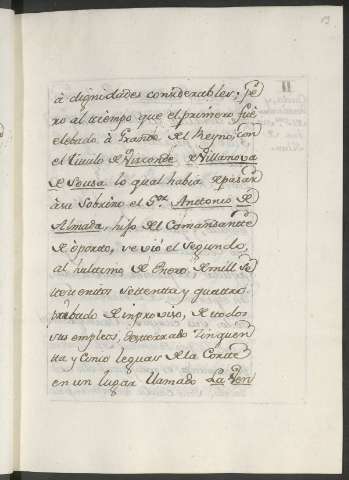 13
à dignidades considerables; pe
ro al tiempo que el primero fue
elebado à Grande del Reyno, con
el titulo de Visconde de Villanova
de Sousa lo qual habia de pasar
à su Sobrino el S.or Anttonio de
Almada, hijo del Comandante
de Oporto, se viò el segundo,
al hultimo de Enero de mill se
tecientos settentta y quattro
pribado de inproviso, de todos
sus empleos, desterrado cinquen
ta y cinco leguas de la Corte
en un lugar llamado La Ven